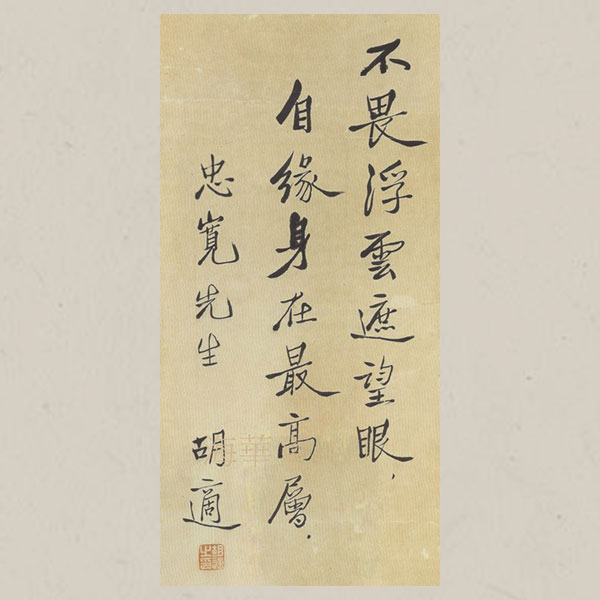 不畏浮雲遮望眼，
自緣身在最高層．
忠寬先生
胡適